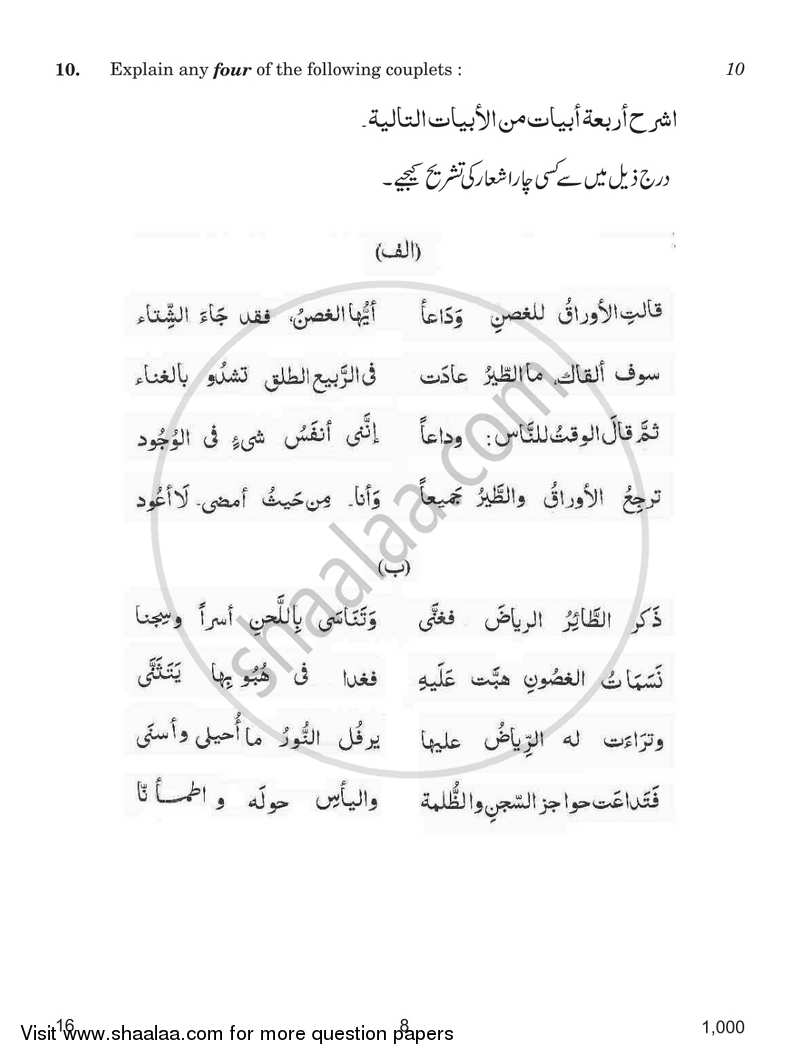 10. Explain any four of the following couplets : 10
اشرح أربعة أبيات من الأبيات التالية۔
درج ذیل میں سے کسی چار اشعار کی تشریح کیجیے۔
(الف)
قالتِ الأوراقُ للغصنِ وَدَاعاً أيُّها الغصنُ، فقد جَاءَ الشِّتاء
سوف ألقاك، ما الطّيرُ عادَت فى الرَّبيع الطلق تشدُو بالغناء
ثمَّ قالَ الوقتُ للنَّاس: وداعاً إنَّنى أنفَسُ شىءٍ فى الوُجُود
ترجِعُ الأوراقُ والطَّيرُ جَميعاً وَأنا۔ مِن حَيثُ أمضى۔ لَا أعُود
(ب)
ذَكر الطَّائِرُ الرياضَ فغنَّى وَتَنَاسَى بِاللَّحنِ أسراً وسِجنا
نَسَمَاتُ الغصُونِ هبَّت عَلَيهِ فغدا فى هُبُوبِها يَتَثَنَّى
وترَاءَت له الرِّياضُ عليها يرفُل النُّورُ ما أُحيلى وأسنَى
فَتَداعَت حواجز السّجنِ والظُّلمة واليأسِ حولَه و اطمأنّا
shaalaa.com
16 8 1,000
Visit www.shaalaa.com for more question papers